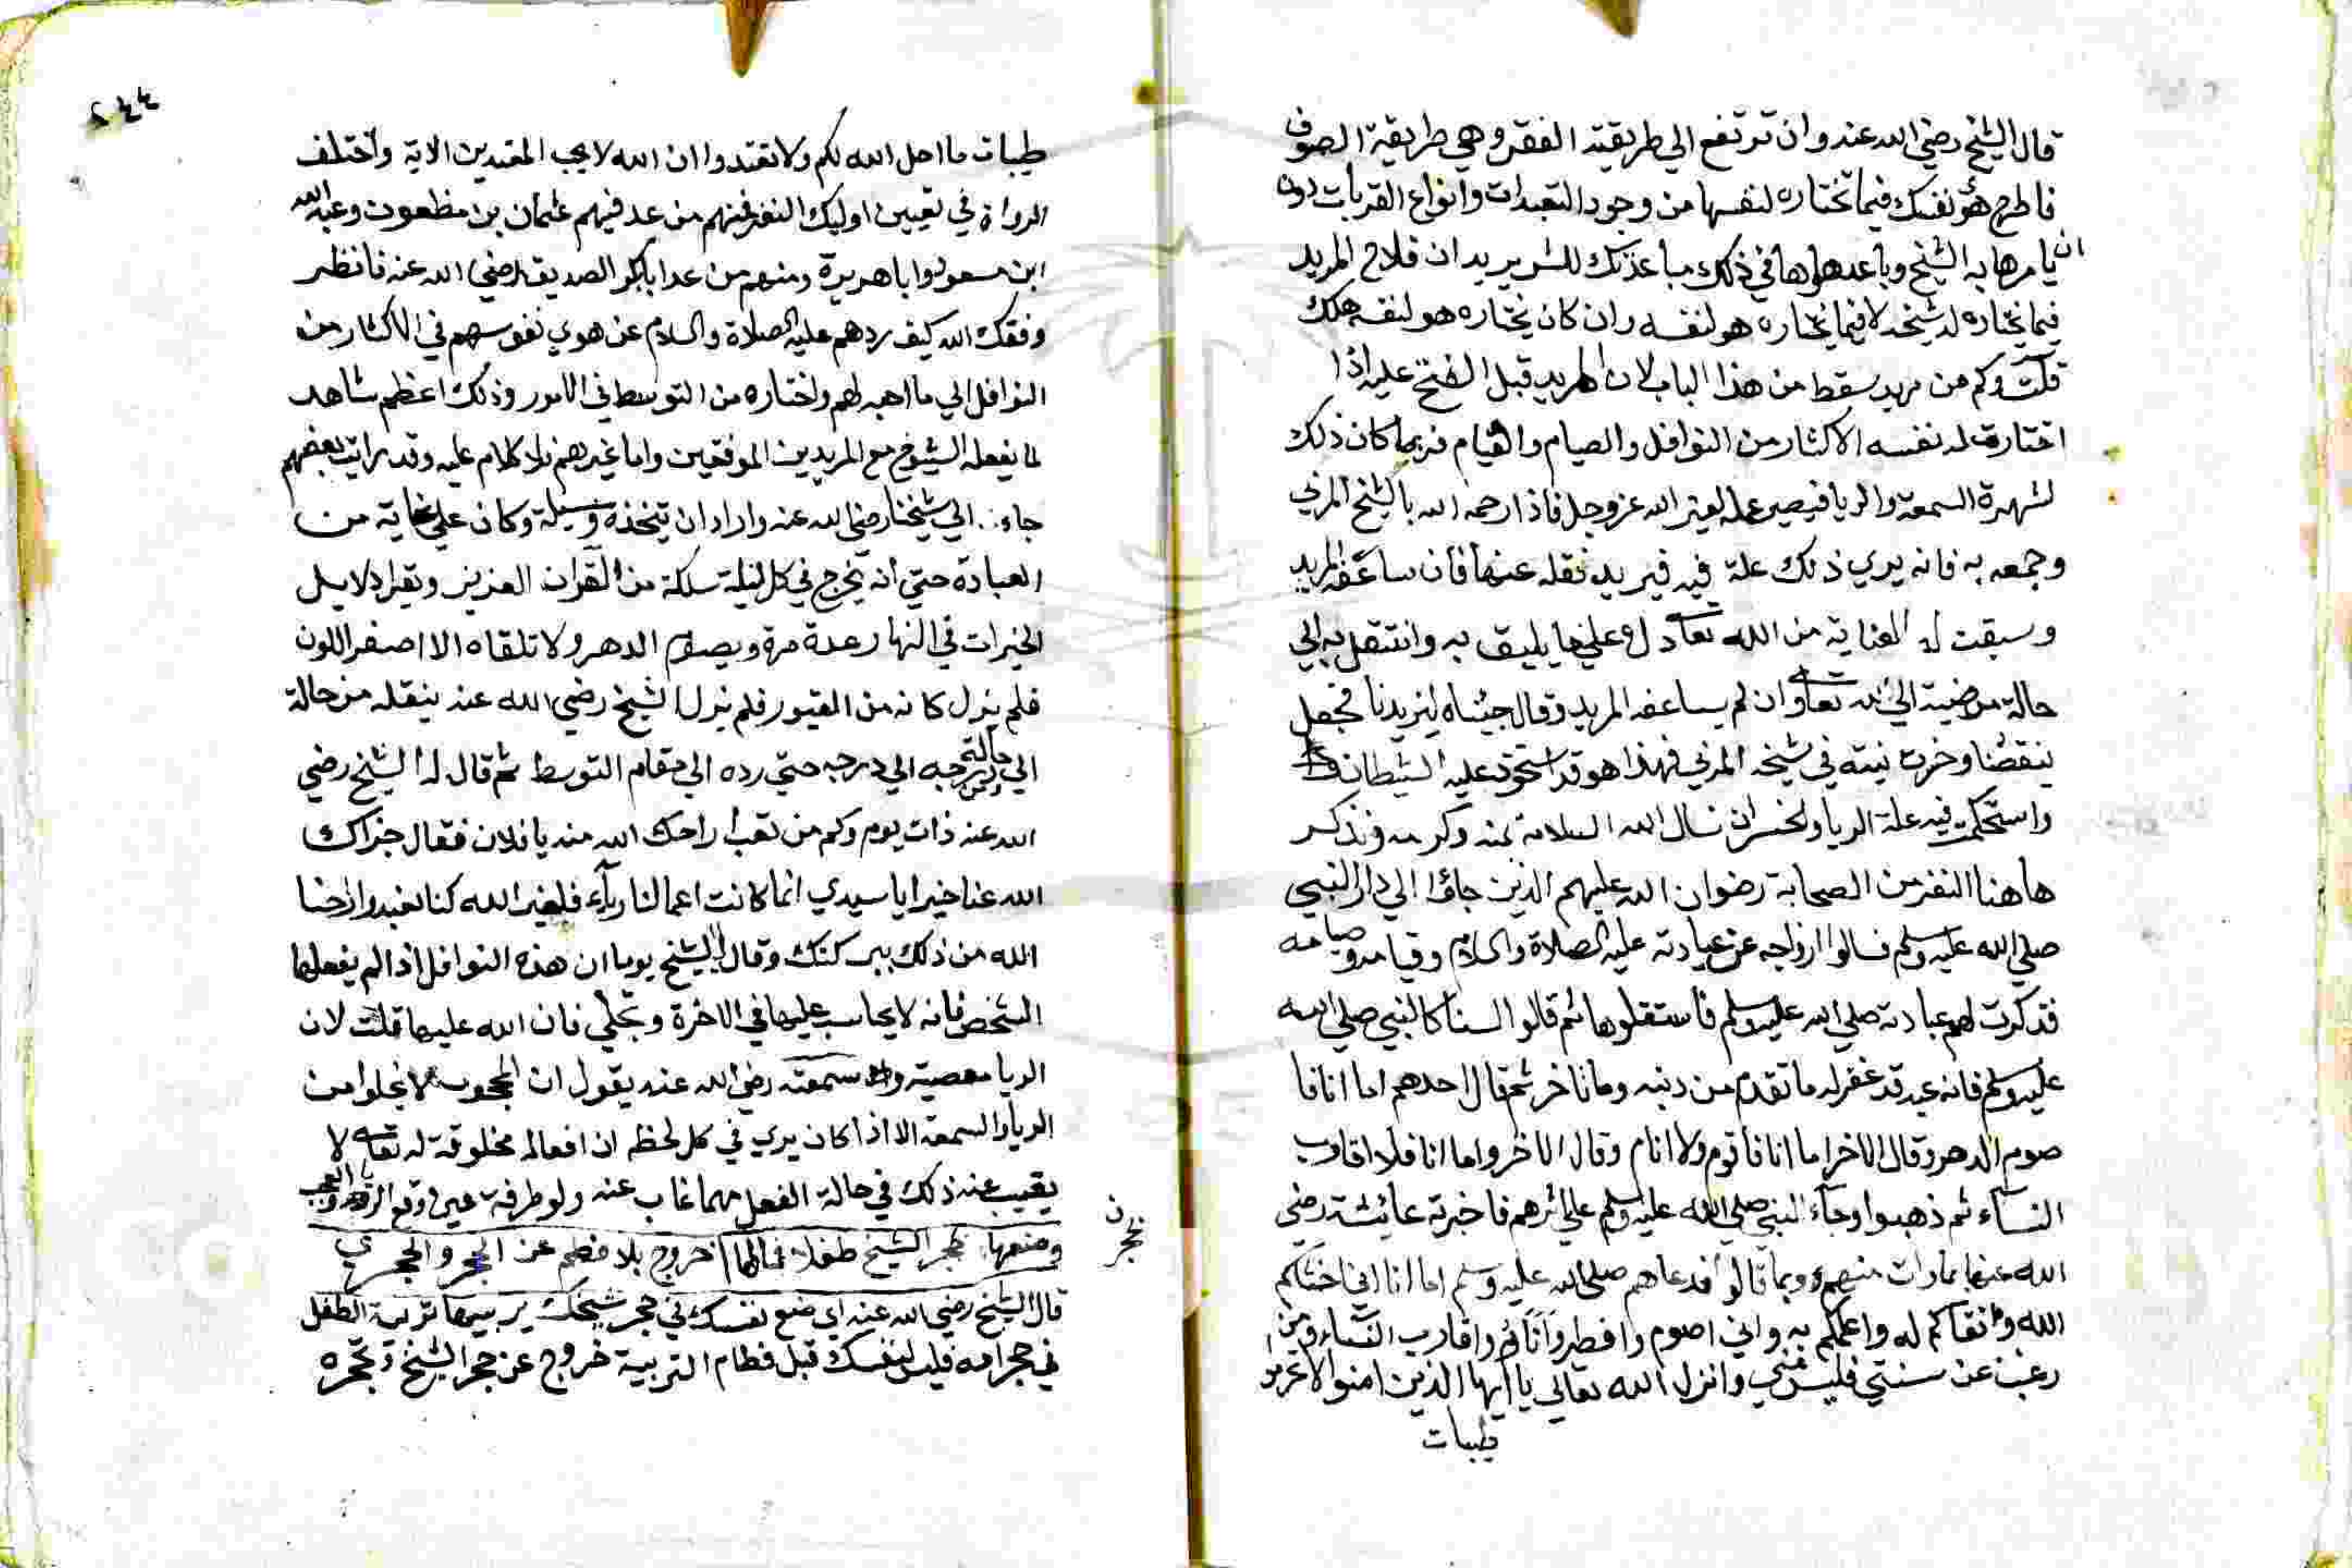 قال الشيخ رضي الله عنه وان ترتفع الي طريقة الفقر وهي طريقة الصوف
فاطرح هو نفسك فيما تختاره لنفسها من وجود التعبدات وانواع القربات دون
ان يامرها به الشيخ وباعد هواها في ذلك مباعدتك للشر يريد ان فلاح المريد
فيما يختاره له شيخه لا فيما يختاره هو لنفسه وان كان يختاره هو لنفسه هلك
قلت وكم من مريد سقط من هذا الباب لان المريد قبل الفتح عليه اذا
اختارت له نفسه الاكثار من النوافل والصيام والقيام فربما كان ذلك
لشهرة السمعة والريا فيصير عمله لغير الله عز وجل فاذا رحمه الله بالشيخ المربي
وجمعه به فانه يري ذلك علة فيه فيريد نقله عنها فان ساعفه المريد
وسبقت له العناية من الله تعالي دله علي ما يليق به وانتقل به الي
حالة مرضية الي الله تعالي وان لم يساعفه المريد وقال جيناه ليزيدنا فجعل
ينقصنا وخرت نيته في شيخه المربي فهذا هو قد استحوذ عليه الشيطان
واستحكمت فيه علة الريا والخسران نسال الله السلامة بمنه وكرمه ونذكر
هاهنا النفر من الصحابة رضوان الله عليهم الذين جاؤا الي دار النبي
صلي الله عليه وسلم فسالوا ازواجه عن عبادته عليه الصلاة والسلام وقيامه وصيامه
فذكرت لهم عبادته صلي الله عليه وسلم فاستقلوها ثم قالوا السنا كالنبي صلي الله
عليه وسلم فانه عبد قد غفر له ما تقدم من ذنبه وما تاخر ثم قال احدهم اما انا فا
صوم الدهر وقال الاخر اما انا فاقوم ولا انام وقال الاخر واما انا فلا اقارب
النساء ثم ذهبوا وجاء النبي صلي الله عليه وسلم علي اثرهم فاخبرته عايشة رضي
الله عنها بما رات منهم وبما قالوا فدعاهم صلي الله عليه وسلم اما انا اني اخشاكم
الله واتقاكم له واعلمكم به واني اصوم وافطر وانام واقارب النساء ومن
رغب عن سنتي فليس مني وانزل الله تعالي يا ايها الذين امنوا لا تحرموا
طيبات
٢٤٤
طيبات ما احل الله لكم ولا تعتدوا ان الله لا يحب المعتدين الاية واختلف
الرواة في تعيين اوليك النفر فمنهم من عد فيهم عثمان بن مظعون وعبد الله
ابن مسعود وابا هريرة ومنهم من عد ابا بكر الصديق رضي الله عنه فانظر
وفقك الله كيف ردهم عليه الصلاة والسلام عن هوي نفوسهم في الاكثار من
النوافل الي ما احبه لهم واختاره من التوسط في الامور وذلك اعظم شاهد
لما يفعله الشيوخ مع المريدين الموفقين واما غيرهم فلا كلام عليه وقد رايت بعضهم
جاء الي شيخنا رضي الله عنه واراد ان يتخذه وسيلة وكان علي غاية من
العبادة حتي انه يخرج في كل ليلة سلكة من القران العزيز ويقرا دلايل
الخيرات في النهار عدة مرة ويصوم الدهر ولا تلقاه الا اصفر اللون
فلم يزل كانه من القبور فلم يزل الشيخ رضي الله عنه ينقله من حالة
الي حالة ومن درجه الي درجه حتي رده الي مقام التوسط ثم قال له الشيخ رضي
الله عنه ذات يوم وكم من تعب اراحك الله منه يا فلان فقال جزاك
الله عنا خيرا يا سيدي انما كانت اعمالنا رياء فلغير الله كنا نعبد وارحنا
الله من ذلك ببركتك وقال لي الشيخ يوما ان هذه النوافل اذا لم يفعلها
الشخص فانه لا يحاسب عليها في الاخرة فان الله عليها قلت لان
الريا معصية وسمعته رضي الله عنه يقول ان المحجوب لا يخلوا من
الريا والسمعة الا اذا كان يري في كل لحظه ان افعاله مخلوقة له تعالي لا
يغيب عنه ذلك في حالة الفعل مهما غاب عنه ولو طرفة عين وقع الريا والعجب
وضعها بحجر الشيخ طفلا فما لها خروج بلا فطم عن الحجر والحجر
ن
بحجر
قال الشيخ رضي الله عنه اي ضع نفسك في حجر شيخك يربيها تربية الطفل
في حجر امه فليس لنفسك قبل فطام التربية خروج عن حجر الشيخ وتحجره